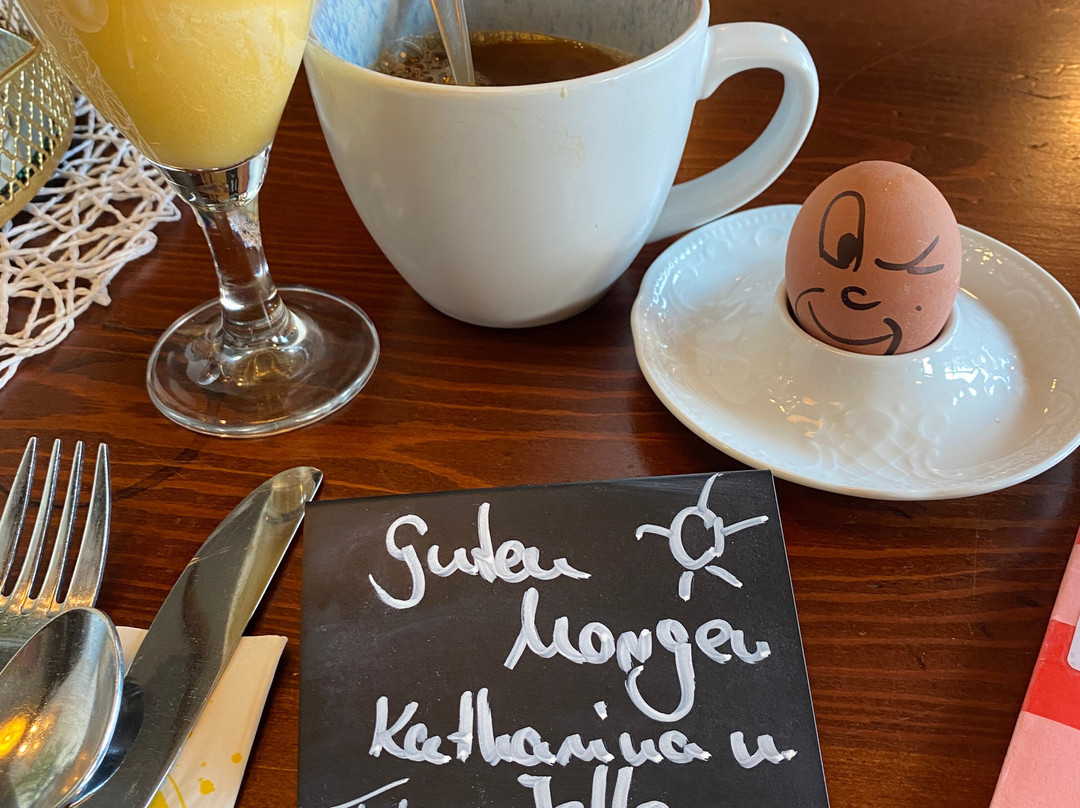 Guten
Morgen
Katharina u